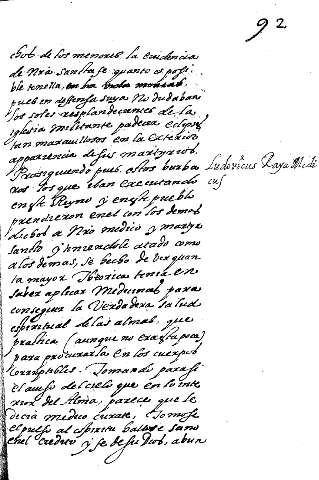 92
de los menores la evidencia
de Nrã Sancta fe quanto es posi-
ble tenella,
pues en deffensa suya No dudaban
los soles resplandecientes de la
iglesia Militante padecer eclypses
tan marauillosos en la exterior
apparencia de sus martyrios,
Prosiguiendo pues estos barba
ros los que iban executando
en este Reyno y en este pueblo
prendieron en el con los demas
a Nro medico y martyr
sancto y atado como
a los demas, se hecho de ver quan
ta mayor theorica tenia en
saber aplicar Medicinas para
conseguir la Verdadera salud
espiritual de las almas, que
practica (aunque no era poca)
para procurarla en los cuerpos
corruptibles. Tomando para si
el auiso del cielo que en lo inte
rior del Alma, parece que le
decia medico curate, tomose
el pulso al espiritu sano
en el credito y fe de su Dios,
Ludovicus Medi
cus